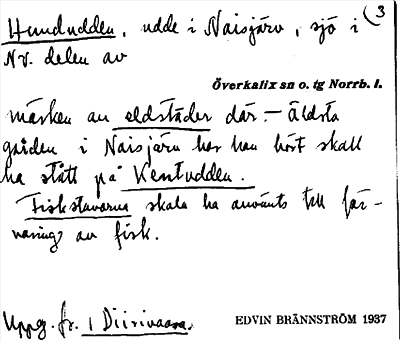 Hundudden, udde i Naisjärv, sjö i (3
NV. delen av
Överkalix sn o. tg Norrb. l.
märken av eldstäder där. – Äldsta
gården i Naisjärv har han hört skall
ha stått på Kentudden.
Fiskstavarna skola ha använts till för-
varing av fisk.
Uppg. fr. i Diisivaara.
EDVIN BRÄNNSTRÖM 1937